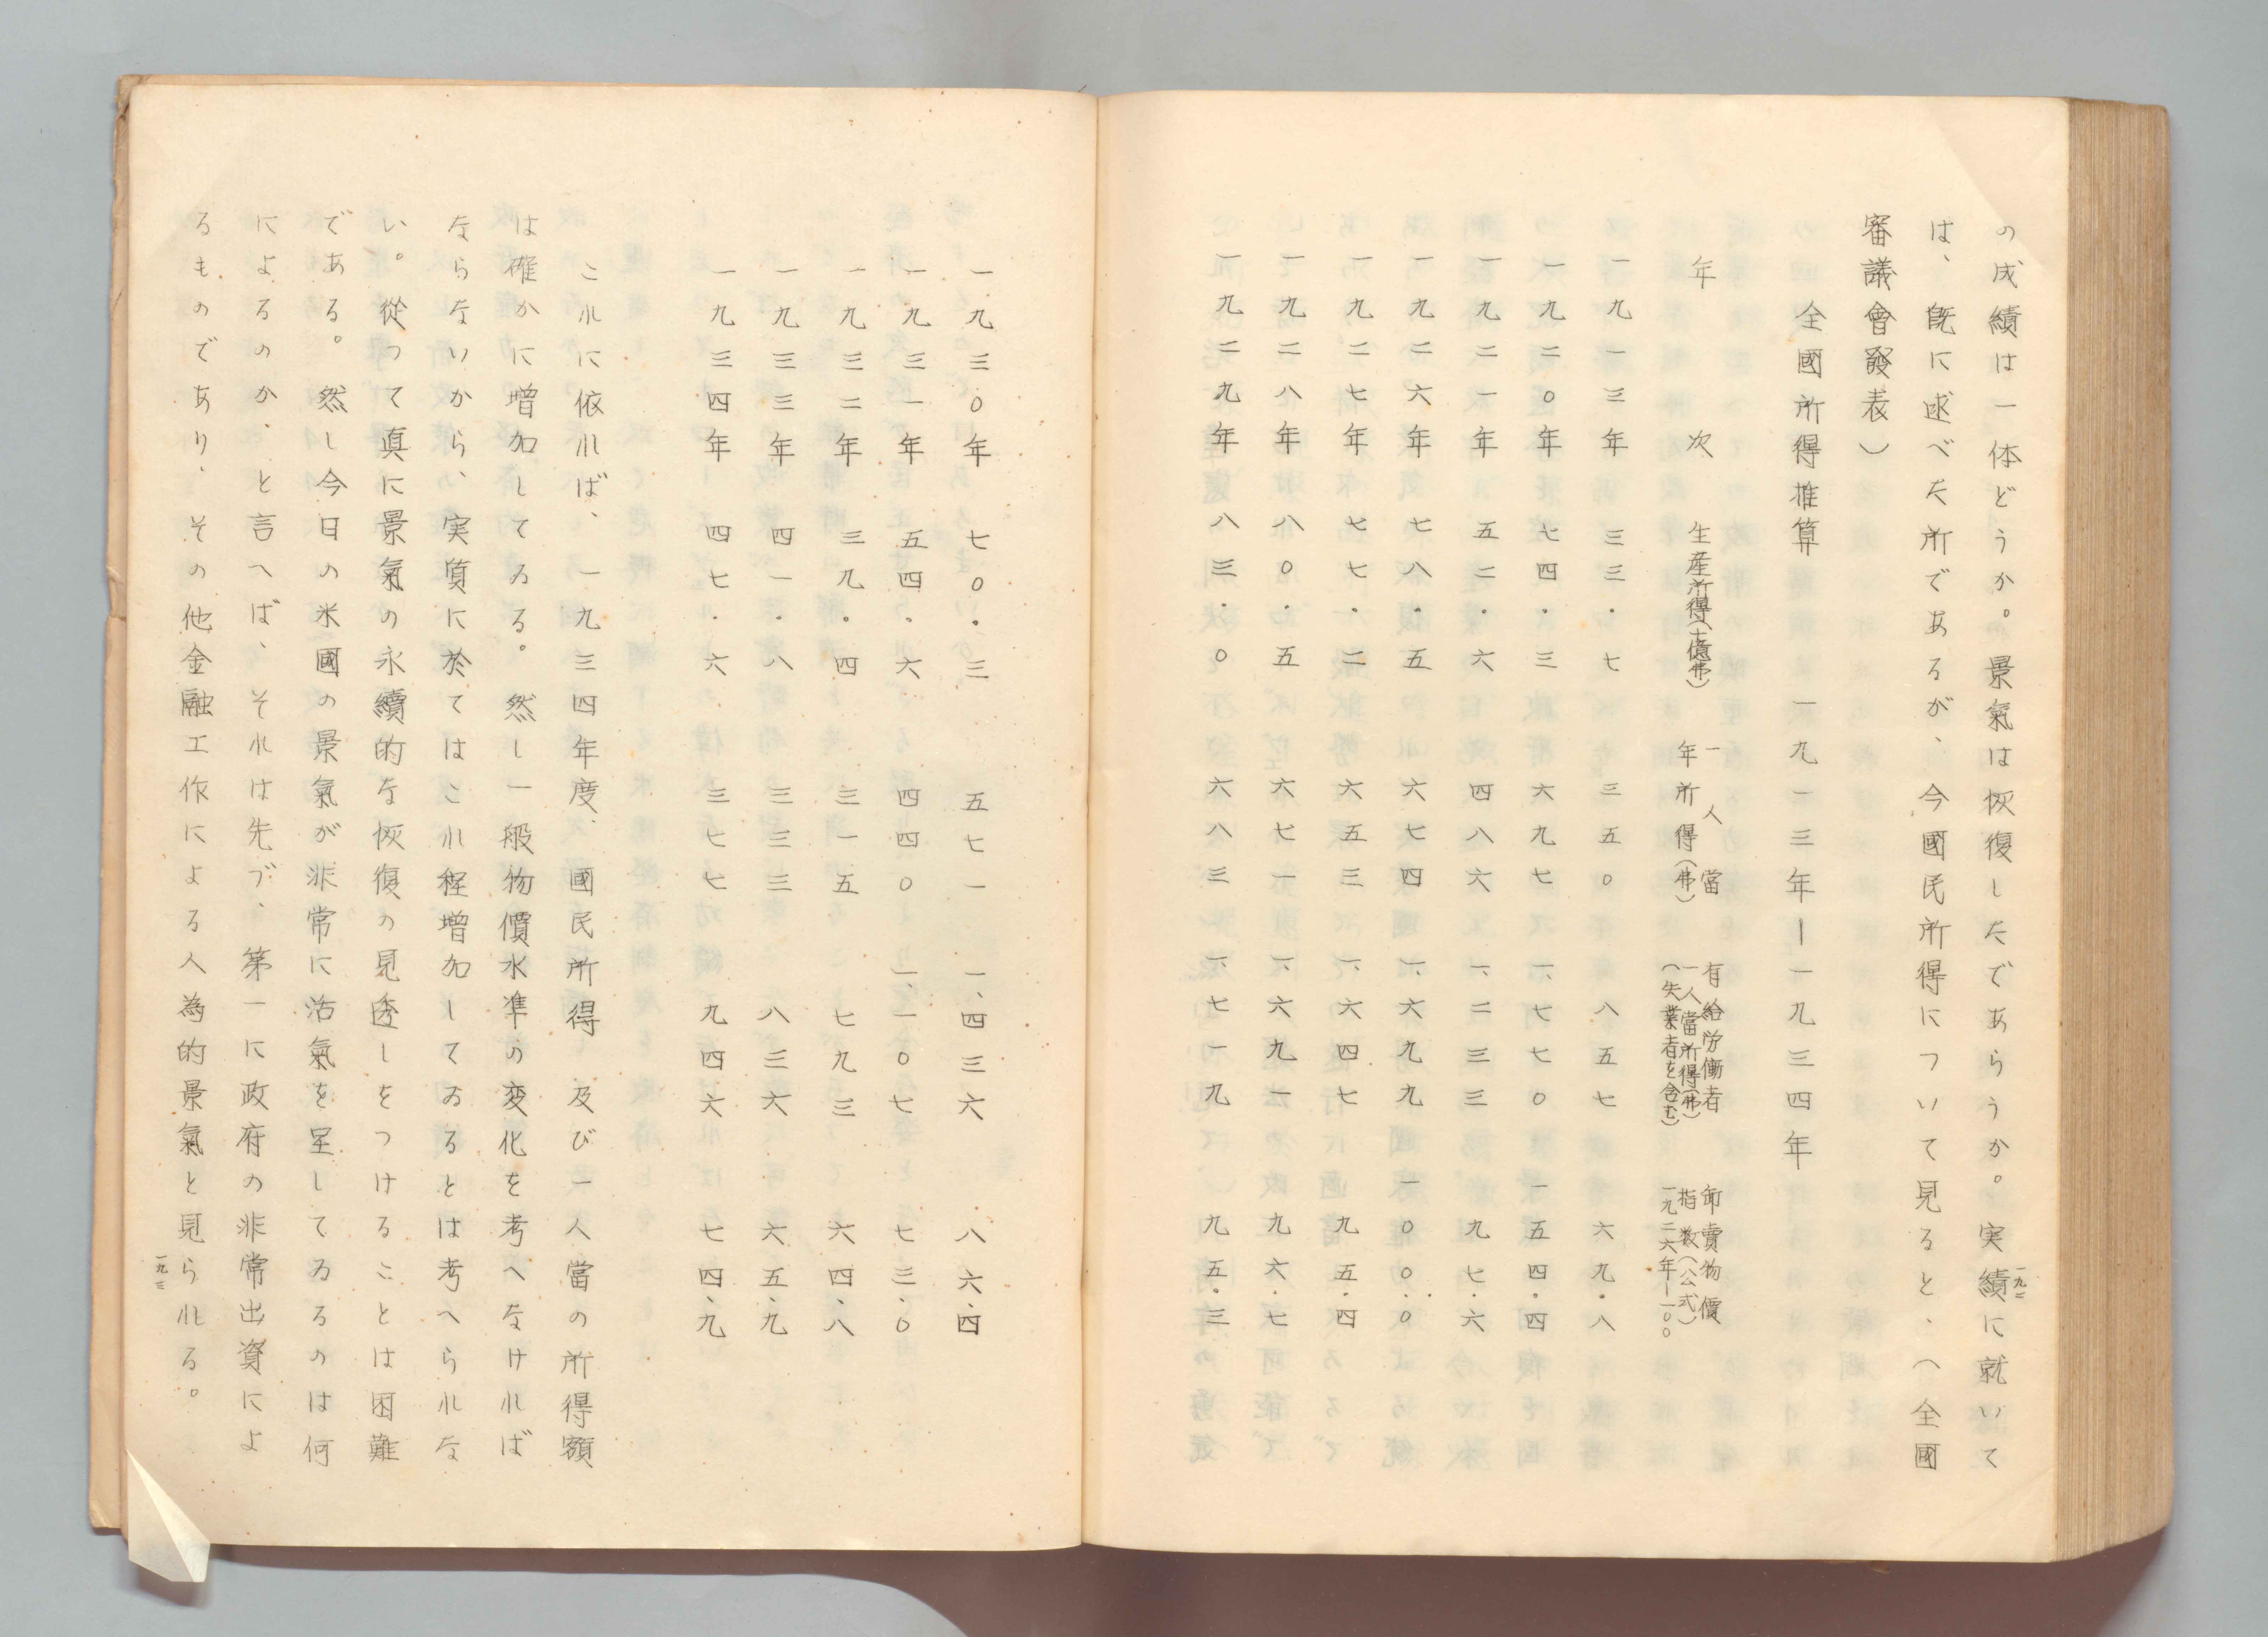 の成績は一体どうか。景氣は恢復したであらうか。実績に就いて
は、既に述べた所であるが、今國民所得について見ると、（全國
審議會發表）
全國所得推算　一九一三年ー一九三四年
年次　生産所得（十億弗）　一人當年所得（弗）　有給労働者一人當所得（弗）（失業者を含む）　卸賣物價指数（公式）一九二六年ー一〇〇
一九一三年　三三・七　三五〇　八五七　六九・八
一九二〇年　七四・三　六九七　一、七七〇　一五四・四
一九二一年　五二・六　四八六　一、二三三　九七・六
一九二六年　七八・五　六七四　一、六九九　一〇〇・〇
一九二七年　七七・二　六五三　一、六四七　九五・四
一九二八年　八〇・五　六七一　一、六九一　九六・七
一九二九年　八三・〇　六八三　一、七一九　九五・三
一九二
一九三〇年　七〇・三　五七一　一、四三六　八六、四
一九三一年　五四・六　四四〇　一、一〇七　七三、〇
一九三二年　三九・四　三一五　七九三　六四、八
一九三三年　四一・八　三三三　八三六　六五、九
一九三四年　四七・六　三七七　九四六　七四、九
これに依れば、一九三四年度、國民所得　及び一人當の所得額
は確かに増加してゐる。然し一般物價水準の変化を考へなければ
ならないから、実質に於てはこれ程増加してゐるとは考へられな
い。從つて真に景氣の永續的な恢復の見透しをつけることは困難
である。然し今日の米國の景氣が非常に活氣を呈してゐるのは何
によるのか、と言へば、それは先づ、第一に政府の非常出資によ
るものであり、その他金融工作による人為的景氣と見られる。
一九三